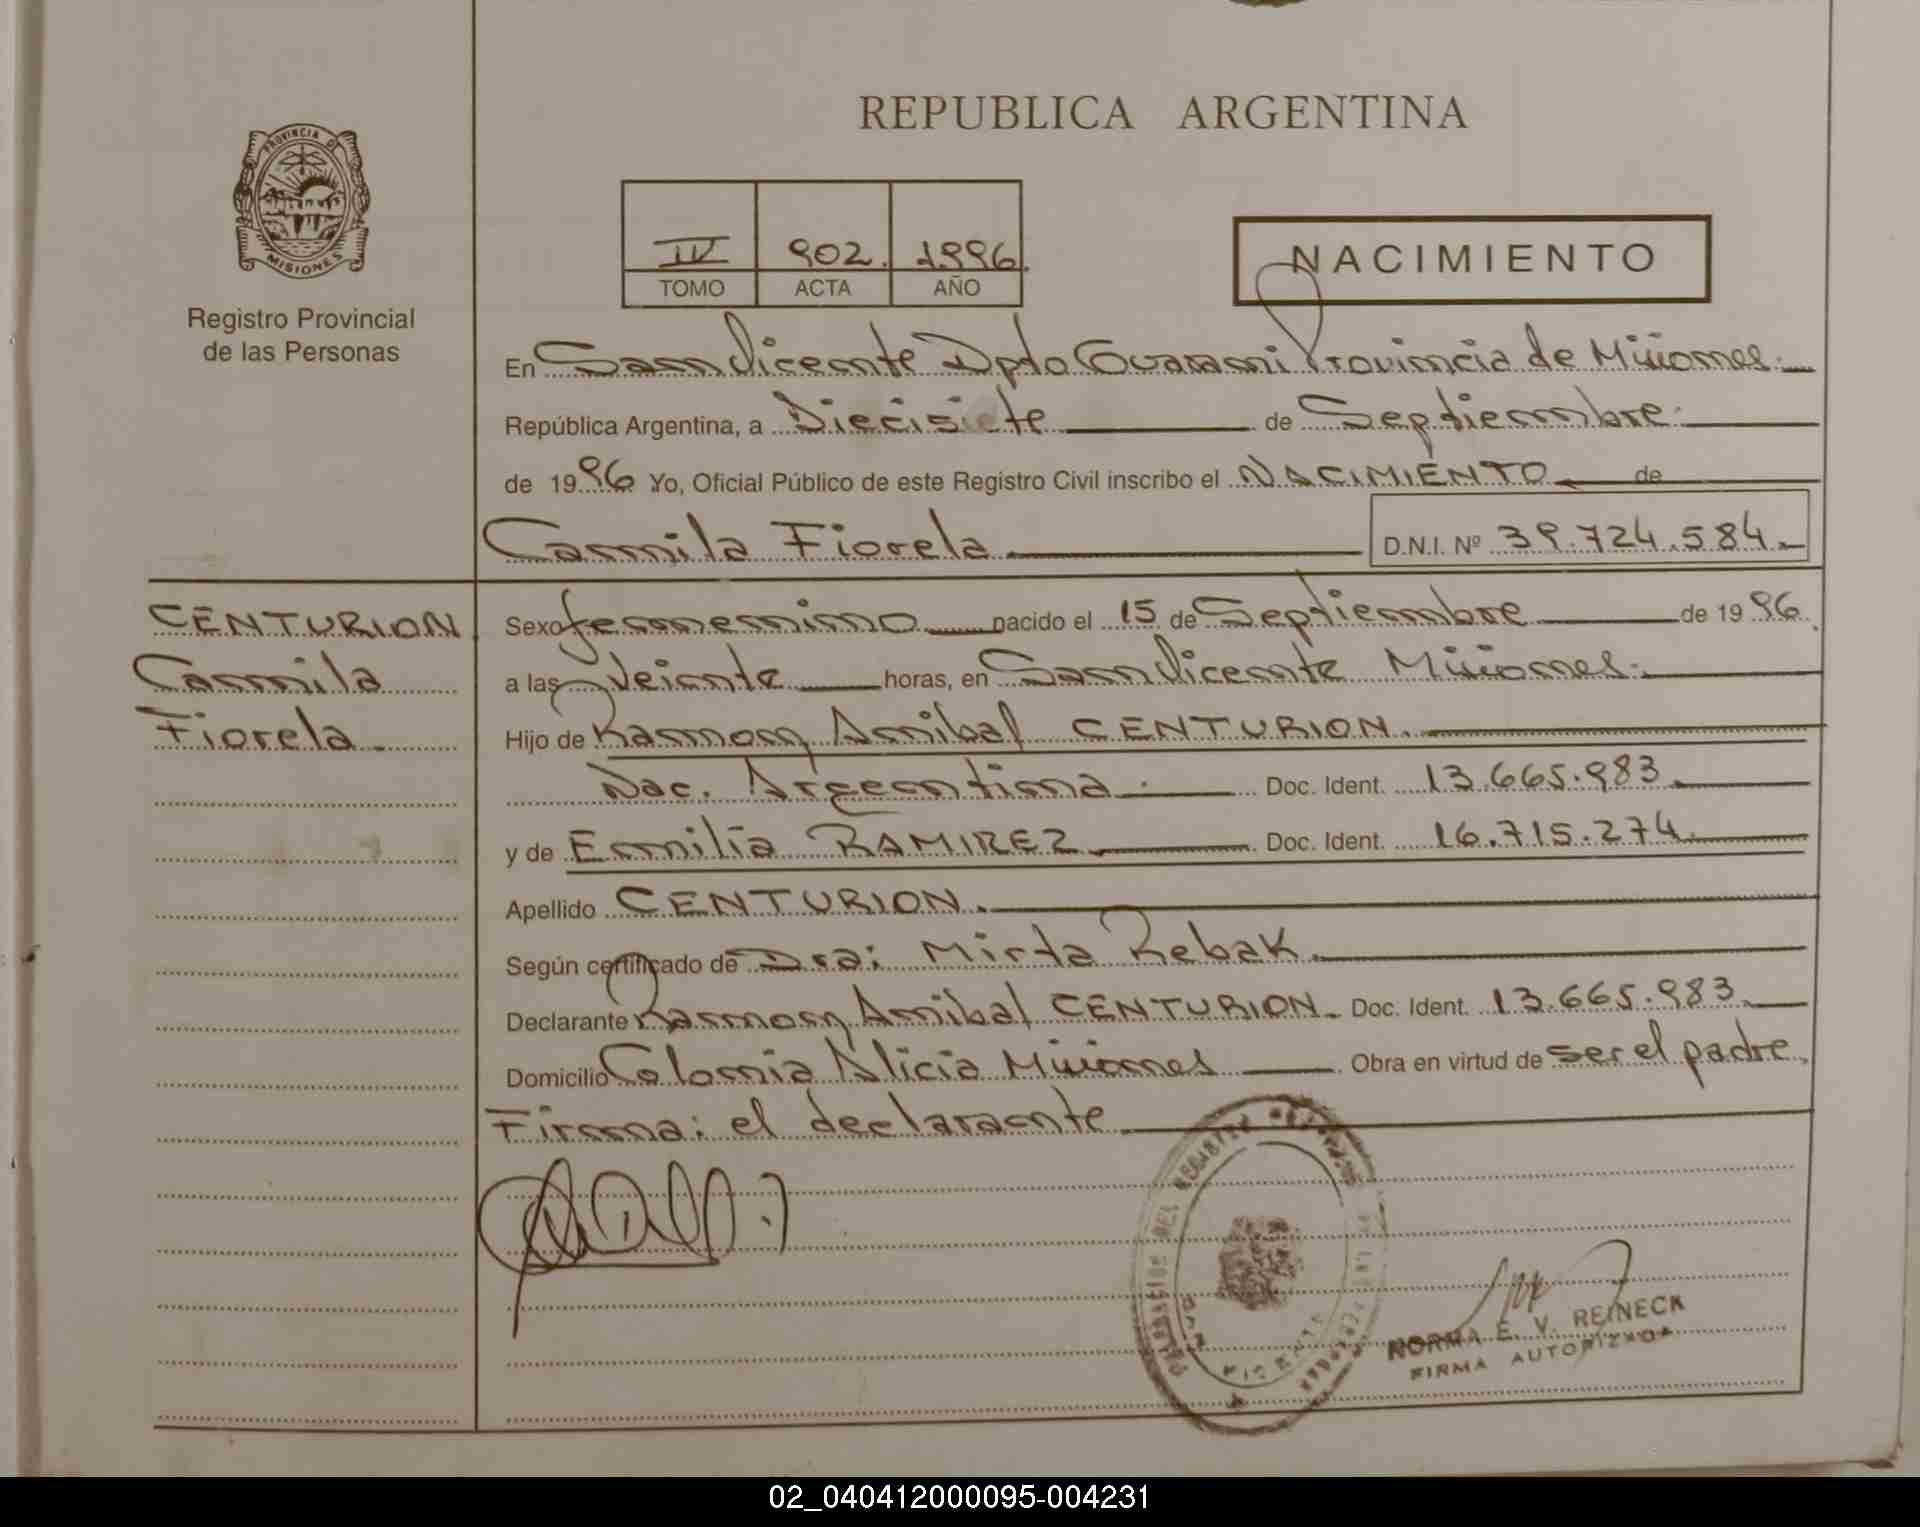 REPUBLICA ARGENTINA
PROVINCIA DE
MISIONES
Registro Provincial
de las Personas
IV 902. 1996.
TOMO ACTA AÑO
NACIMIENTO
En San Vicente Dpto Guarani Provincia de Misiones.
República Argentina, a Diecisiete de Septiembre.
de 1996 Yo, Oficial Público de este Registro Civil inscribo el NACIMIENTO de
Camila Fiorela D.N.I. Nº 39.724.584.
CENTURION
Camila
Fiorela.
Sexo femenino nacido el 15 de Septiembre de 1996.
a las Veinte horas, en San Vicente Misiones.
Hijo de Ramon Anibal CENTURION.
Nac. Argentina. Doc. Ident. 13.665.983.
y de Emilia RAMIREZ. Doc. Ident. 16.715.274.
Apellido CENTURION.
Según certificado de Dra: Mirta Rebak.
Declarante Ramon Anibal CENTURION. Doc. Ident. 13.665.983.
Domicilio Colonia Alicia Misiones Obra en virtud de ser el padre.
Firma: el declarante.
NORMA E. V. REINECK
FIRMA AUTORIZADA
02_040412000095-004231